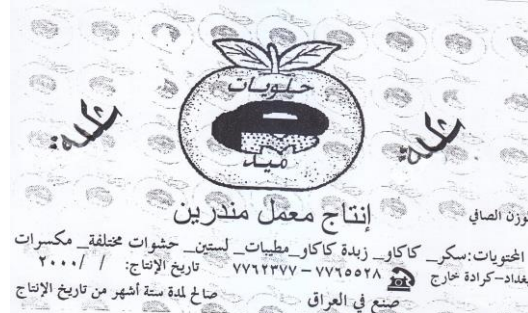 حلويات
ميد
إنتاج معمل مندرين
الوزن الصافي
المحتويات:سكر_ كاكاو_ زبدة كاكاو_ مطيبات_ لستين_ حشوات مختلفة_ مكسرات
بغداد-كرادة خارج ٧٧٦٥٥٢٨ – ٧٧٦٢٣٧٧ تاريخ الإنتاج: / /٢٠٠٠
صنع في العراق صالح لمدة ستة أشهر من تاريخ الإنتاج